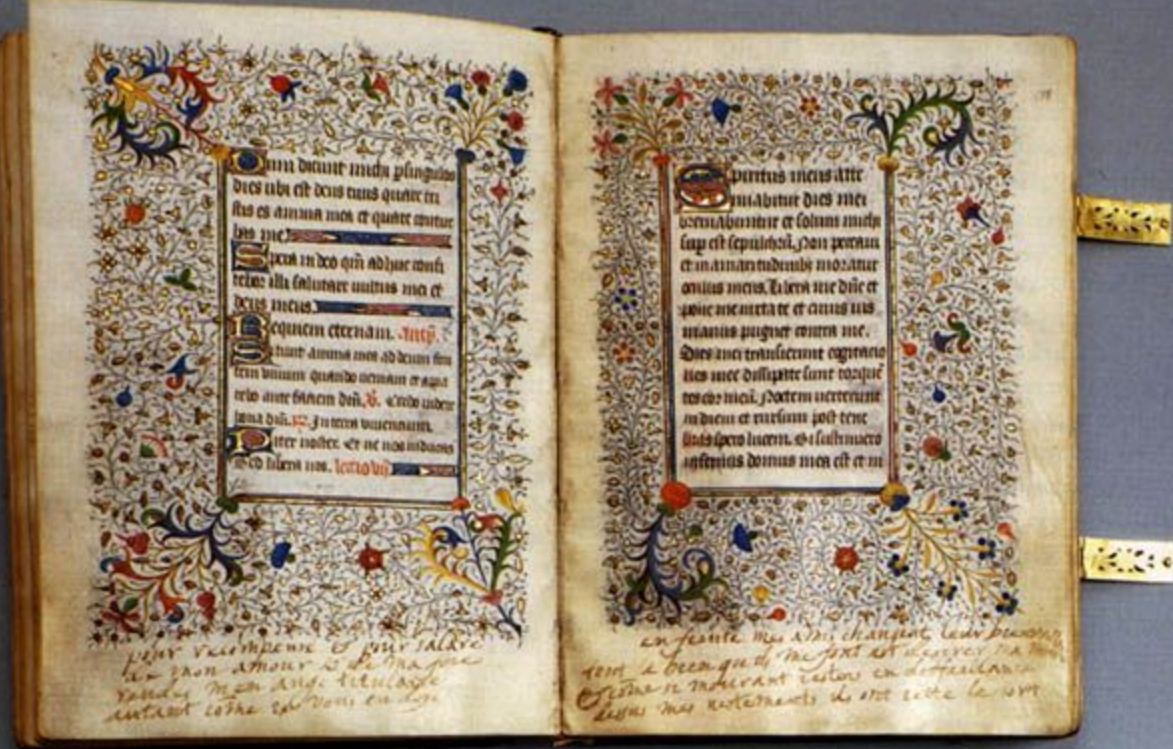 Dum dicunt michi p singulos
dies ubi est deus tuus quare tri
stis es anima mea et quare contur
bas me
Spera in deo qm adhuc confi
tebor illi salutare vultus mei et
deus meus
Requiem eternam. Anty.
Sitiuit anima mea ad deum fon
tem vivum quando veniam et appa
rebo ante faciem dni. V. Credo videre
bona dni. In terra viventium.
Pater noster. Et ne nos inducas
Sed libera nos. lectio vij
Spiritus meus atte
nuabitur dies mei
breviabuntur et solum michi
sup est sepulchru. Non peccavi
et in amaritudinibz moratur
oculus meus. Libera me dne et
pone me iuxta te et cuius vis
manus pugnet contra me.
Dies mei transierunt cogitatio
nes mee dissipate sunt torque
tes cor meu. Noctem verterunt
in diem et rursum post tene
bras spero lucem. Si sustinuero
infernus domus mea est et in
pour recompense et pour salaire
de mon amour et de ma foie
rendes mon ange titulaire
autant come vous en
mes amis changent leur
tout le bien qu ils me font est desirer ma
come mourant
dessus mes vestements ils ont jette le sort